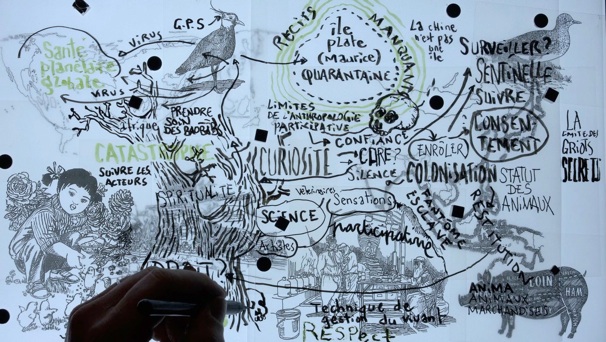 G.P.S
VIRUS
Santé
planétaire
globale
VIRUS
Afrique
PRENDRE
SOIN
DES BAOBABS
CATASTROPHE
SUIVRE LES
ACTEURS
SPIRITUALITÉ
RÉCITS
MANQUANTS
île
plate
(Maurice)
QUARANTAINE
LA chine
n'est pas
une
île
LIMITES
DE L'ANTHROPOLOGIE
PARTICIPATIVE
CONFIANCE
CURIOSITÉ
CARE?
SILENCE
Vétérinaires
Sensations
SCIENCE
participative
Artistes
SURVEILLER?
SENTINELLE
SUIVRE
CONSEN-
TEMENT
ENROLER
COLONISATION
STATUT
DES
ANIMAUX
FANTÔME
ESCLAVE
RESTITUTION
LA
LIMITE DES
GRIOTS
SECRETS
ANIMA
ANIMAUX
MARCHANDISES
LOIN
HAM
Technique de
gestion du vivant
RESPECT